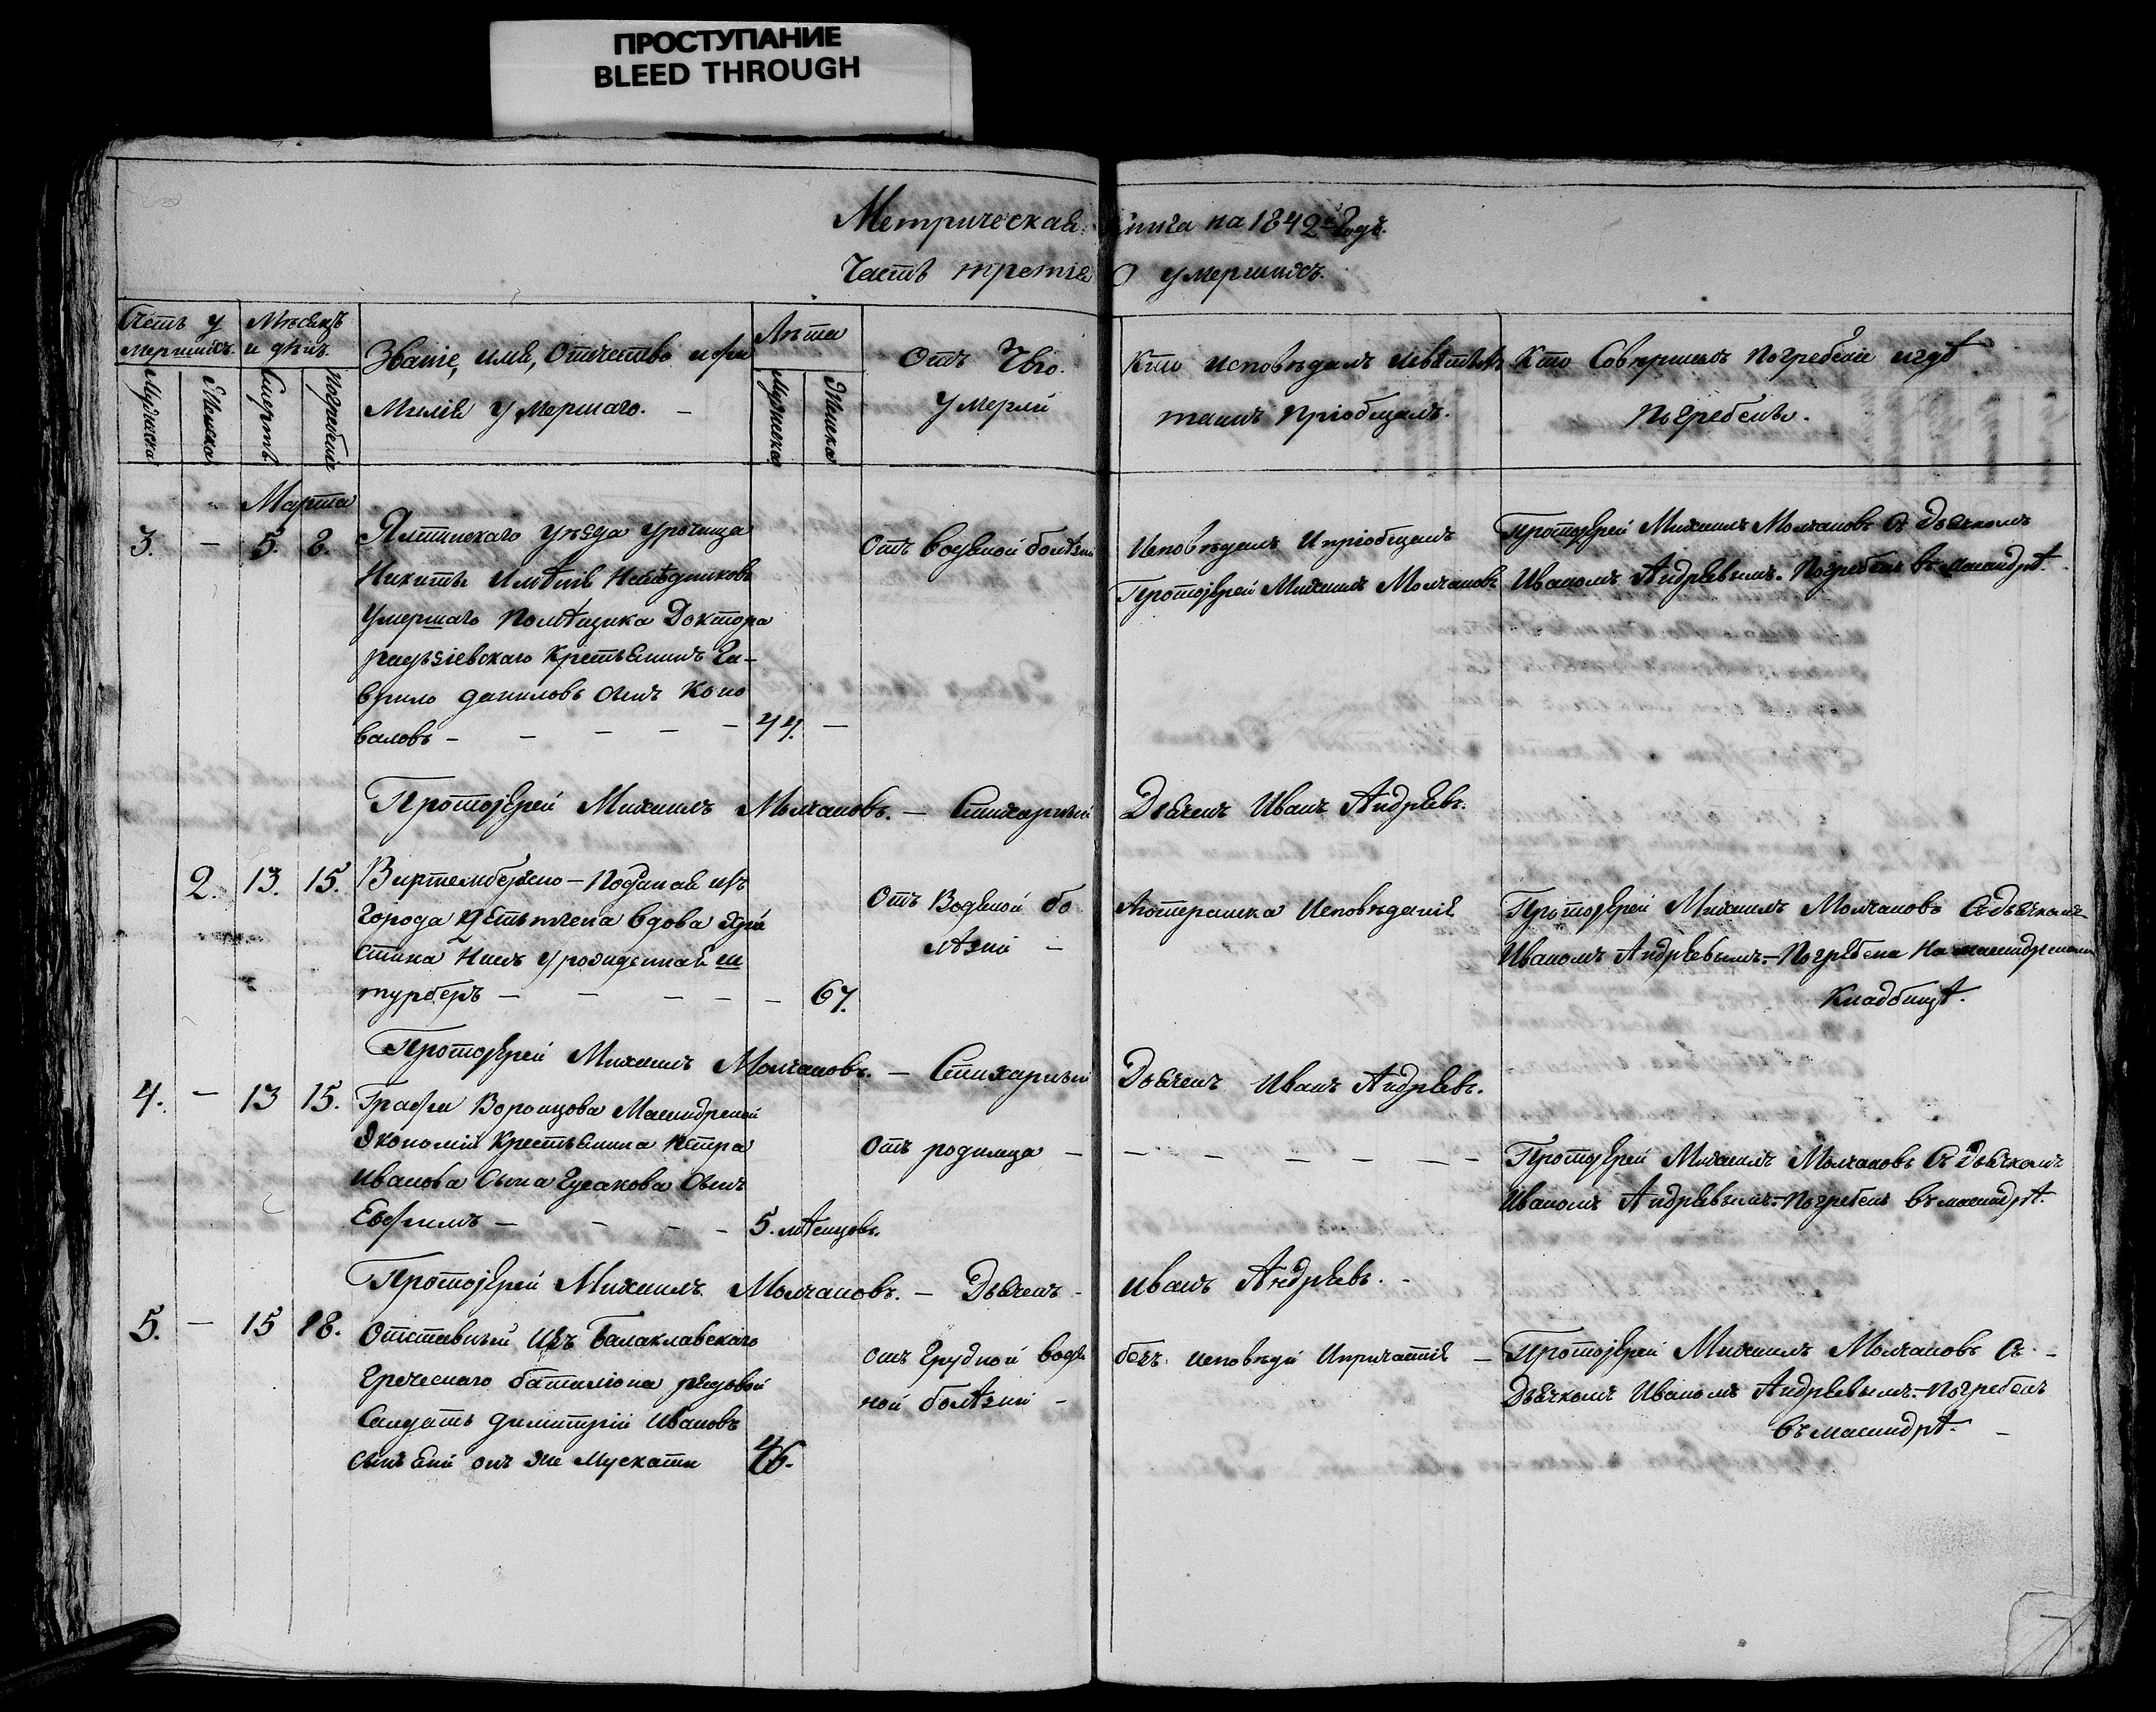 ПРОСТУПАНИЕ
BLEED THROUGH
Метрическая Книга на 1842й Годъ.
Часть третія О умершихъ.
Счетъ умершихъ.
Мѣсяцъ и день
Званіе, имя, Отчество и фамилія умершаго. —
Лѣта
Отъ Чего умерли
Кто исповѣдалъ и святыхъ таинъ пріобщалъ.
Кто Совершилъ погребеніе и гдѣ погребены.
Мужеска
Женска
Смерть
Погребеніе
Мужеска
Женска
Марта
3. — 5. 8. Ялтинскаго уѣзда урочища
Никиты имѣнія Наслѣдниковъ
умершаго помѣщика Доктора
крестьянинъ Гаврило
даниловъ сынъ Коно
валовъ — — — — — 44. —
Отъ водяной болѣзни
Исповѣдалъ и пріобщалъ
Протоіерей Михаилъ Молчановъ
Протоіерей Михаилъ Молчановъ съ дьячкомъ
Иваномъ Андреевымъ. Погребенъ въ масандрѣ.
Протоіерей Михаилъ Молчановъ. — Стихарный Дьячекъ Иванъ Андреевъ.
2. 13. 15. Виртембергско-Поданая изъ
города вдова Хри
стина урожденная ш
турберъ — — — — — 67.
Отъ Водяной бо
лѣзни —
Лютеранска Исповѣданія
Протоіерей Михаилъ Молчановъ съ дьячкомъ
Иваномъ Андреевымъ. — Погребена На масандрском
Кладбищѣ.
Протоіерей Михаилъ Молчановъ. — Стихарный Дьячекъ Иванъ Андреевъ.
4. — 13 15. Графа Воронцова Масандрской
Экономіи Крестьянина петра
Иванова Сына Гусакова Сынъ
Евфимъ — — — — 5. мѣсяцовъ.
Отъ родимца — — — — — — —
Протоіерей Михаилъ Молчановъ съ дьячкомъ
Иваномъ Андреевымъ. — Погребенъ въ масандрѣ.
Протоіерей Михаилъ Молчановъ. — Дьячекъ — Иванъ Андреевъ. —
5. — 15 18. Отставный изъ Балаклавскаго
Греческаго баталіона рядовой
Салдатъ димитрій Ивановъ
сынъ онъ же Мускати 46.
отъ грудной водя
ной болѣзни —
безъ исповѣди и причастія —
Протоіерей Михаилъ Молчановъ съ —
Дьячкомъ Иваномъ Андреевымъ. — Погребенъ
въ масандрѣ. —